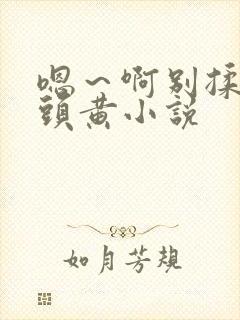 嗯～啊别揉
頭黄小説
如月芳規